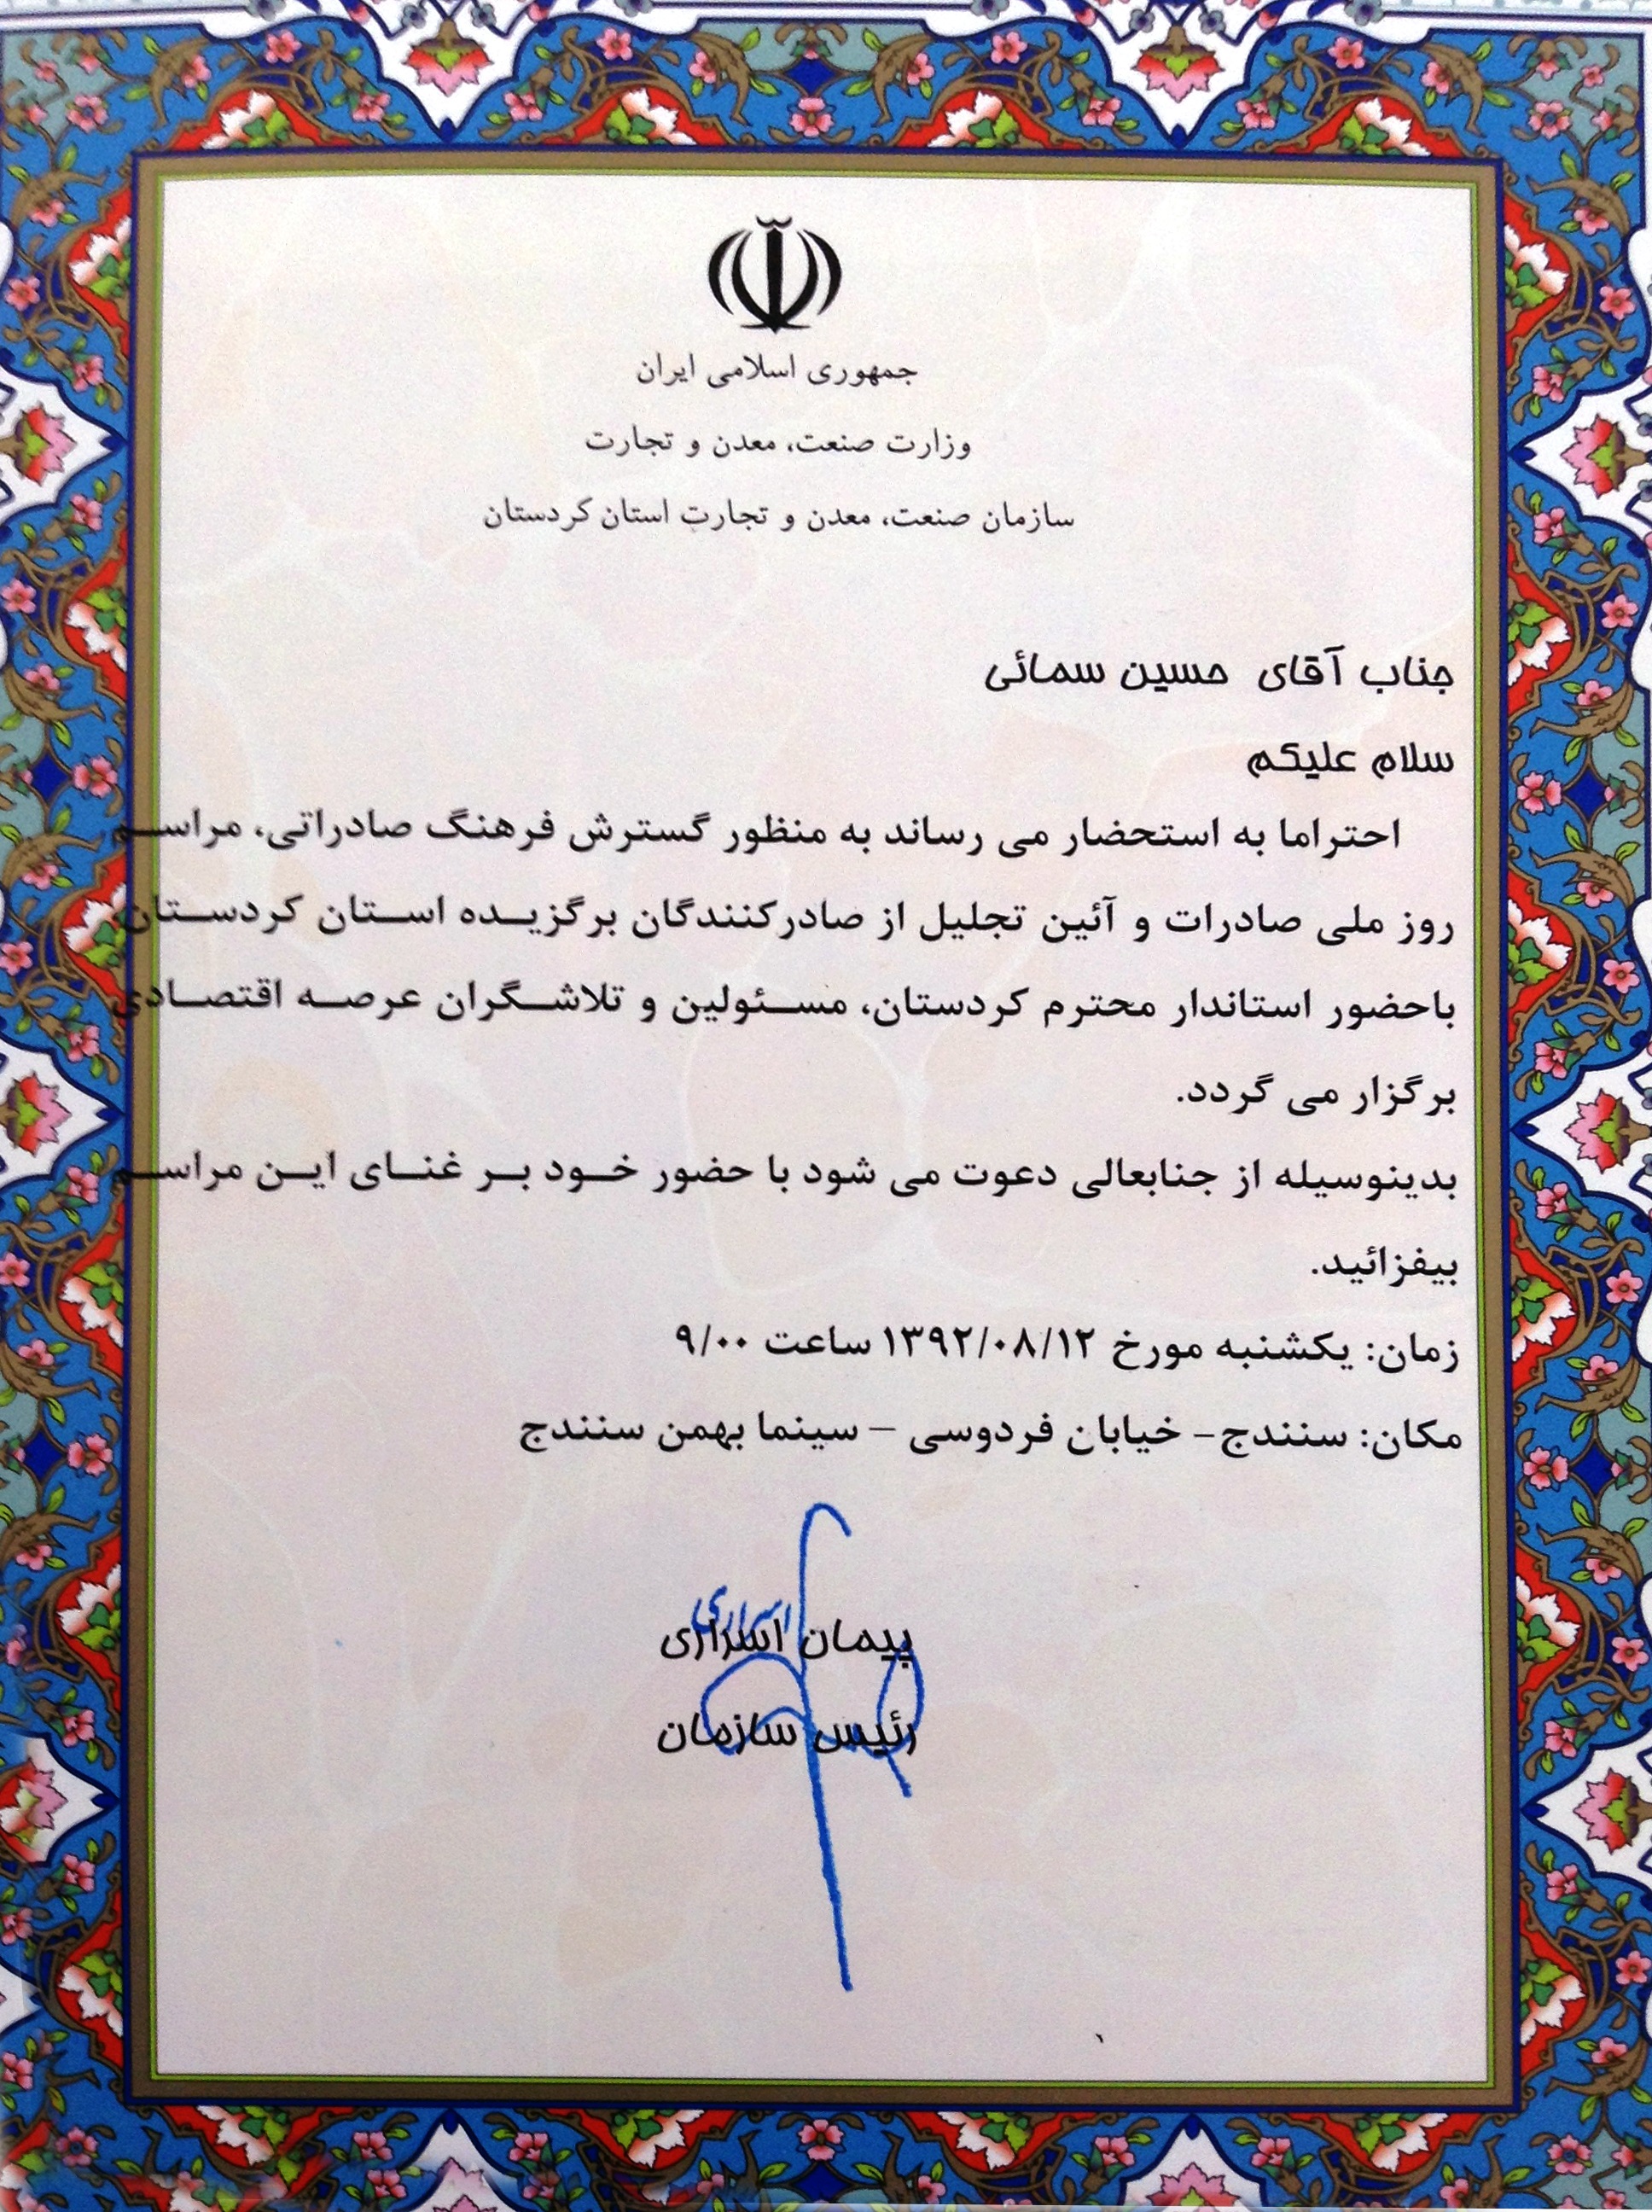 جمهوری اسلامی ایران
وزارت صنعت، معدن و تجارت
سازمان صنعت، معدن و تجارت استان کردستان
جناب آقای حسین سمائی
سلام علیکم
احتراما به استحضار می رساند به منظور گسترش فرهنگ صادراتی، مراسم
روز ملی صادرات و آئین تجلیل از صادرکنندگان برگزیده استان کردستان
باحضور استاندار محترم کردستان، مسئولین و تلاشگران عرصه اقتصادی
برگزار می گردد.
بدینوسیله از جنابعالی دعوت می شود با حضور خود بر غنای این مراسم
بیفزائید.
زمان: یکشنبه مورخ ۱۳۹۲/۰۸/۱۲ ساعت ۹/۰۰
مکان: سنندج- خیابان فردوسی – سینما بهمن سنندج
اسراری
پیمان اسراری
رئیس سازمان